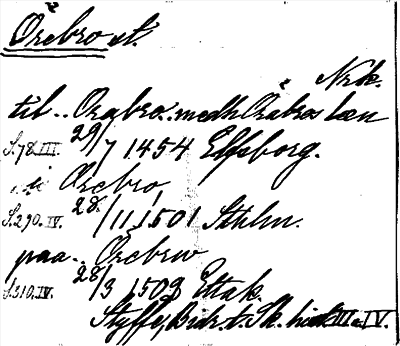 Örebro st.
Nrk.
til.. Orabro.. medh Orabro læn
S.78.III. 29/7 1454 Elfsborg.
.. i Örebro,
S.290.IV. 28/11 1501 Sthlm.
paa.. Örebrw
S.310.IV. 28/3 1503 Ettak.
Styffe, Bidr. t. Sk. hist. III o. IV.